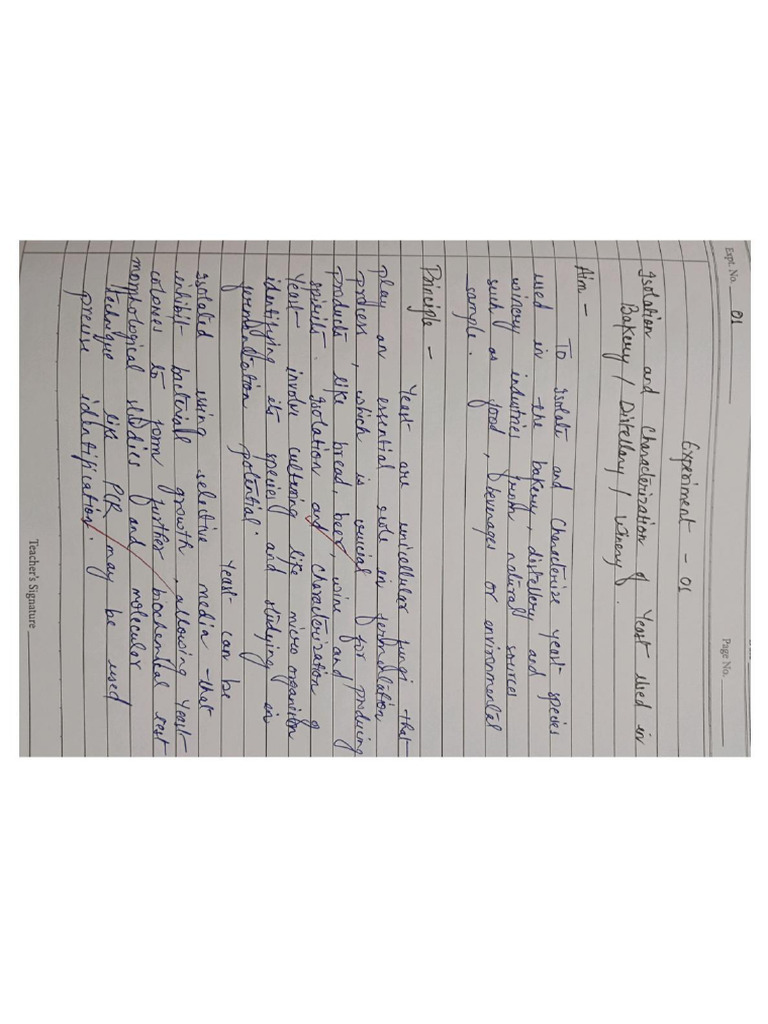 Expt. No. 01
Page No.
Experiment - 01
Isolation and Characterization of Yeast used in
Bakery / Distellery / Winery.
Aim -
To Isolate and Characterize yeast species
used in the bakery, distellery and
winery industries from natural sources
such as food, beverages or environmental
sample.
Principle -
Yeast are unicellular fungi that
play an essential role in fermentation
process, which is crucial for producing
products like bread, beer, wine and
spirits. Isolation and characterization of
Yeast involve culturing like micro organism
identifying its species and studying in
fermentation potential.
Yeast can be
isolated using selective media that
inhibit bacterial growth, allowing yeast
colonies to form further biochemical test
morphological studies and molecular
technique like PCR may be used
precise identification.
Teacher's Signature